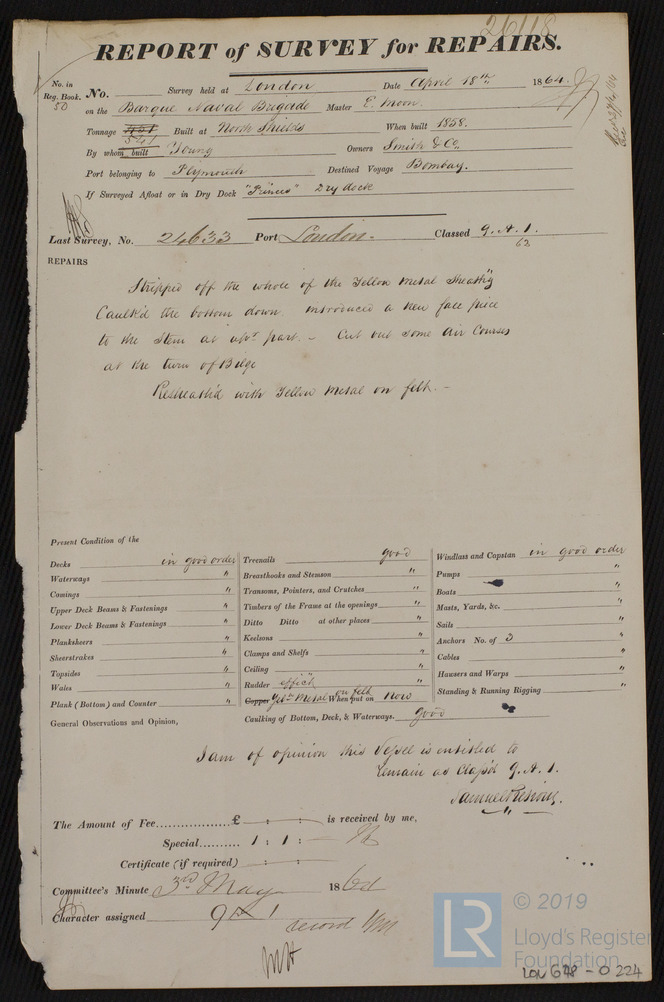 26118
REPORT of SURVEY for REPAIRS.
No. in Reg. Book. 50
No. Survey held at London Date April 18th 1864.
on the Barque Naval Brigade Master E. Moon.
Tonnage 541 Built at North Shields When built 1858.
By whom built Young Owners Smith & Co.
Port belonging to Plymouth Destined Voyage Bombay.
If Surveyed Afloat or in Dry Dock "Princes" Dry dock
Last Survey, No. 24633 Port London. Classed 9. A. 1.
62
REPAIRS
Stripped off the whole of the Yellow Metal Sheath'g
Caulk'd the bottom down. introduced a new face piece
to the Stem at part. - Cut out some Air Courses
at the turn of Bilge
Resheath'd with Yellow Metal on felt. -
Present Condition of the
Decks in good order
Waterways "
Comings "
Upper Deck Beams & Fastenings "
Lower Deck Beams & Fastenings "
Planksheers "
Sheerstrakes "
Topsides "
Wales "
Plank (Bottom) and Counter "
General Observations and Opinion,
Treenails good
Breasthooks and Stemson "
Transoms, Pointers, and Crutches "
Timbers of the Frame at the openings "
Ditto Ditto at other places "
Keelsons "
Clamps and Shelfs "
Ceiling "
Rudder
Copper Metal on felt When put on Now
Caulking of Bottom, Deck, & Waterways. good
Windlass and Capstan in good order
Pumps "
Boats "
Masts, Yards, &c. "
Sails "
Anchors No. of 3 "
Cables "
Hawsers and Warps "
Standing & Running Rigging "
I am of opinion this Vessel is entitled to
remain as Class'd 9. A. 1.
Samuel
The Amount of Fee £ : : is received by me,
Special 1 : 1 : -
Certificate (if required) : :
Committee's Minute 3rd May 1864
Character assigned 9 A 1
record
© 2019
LR
Lloyd's Register
Foundation
LON 678 - 0224